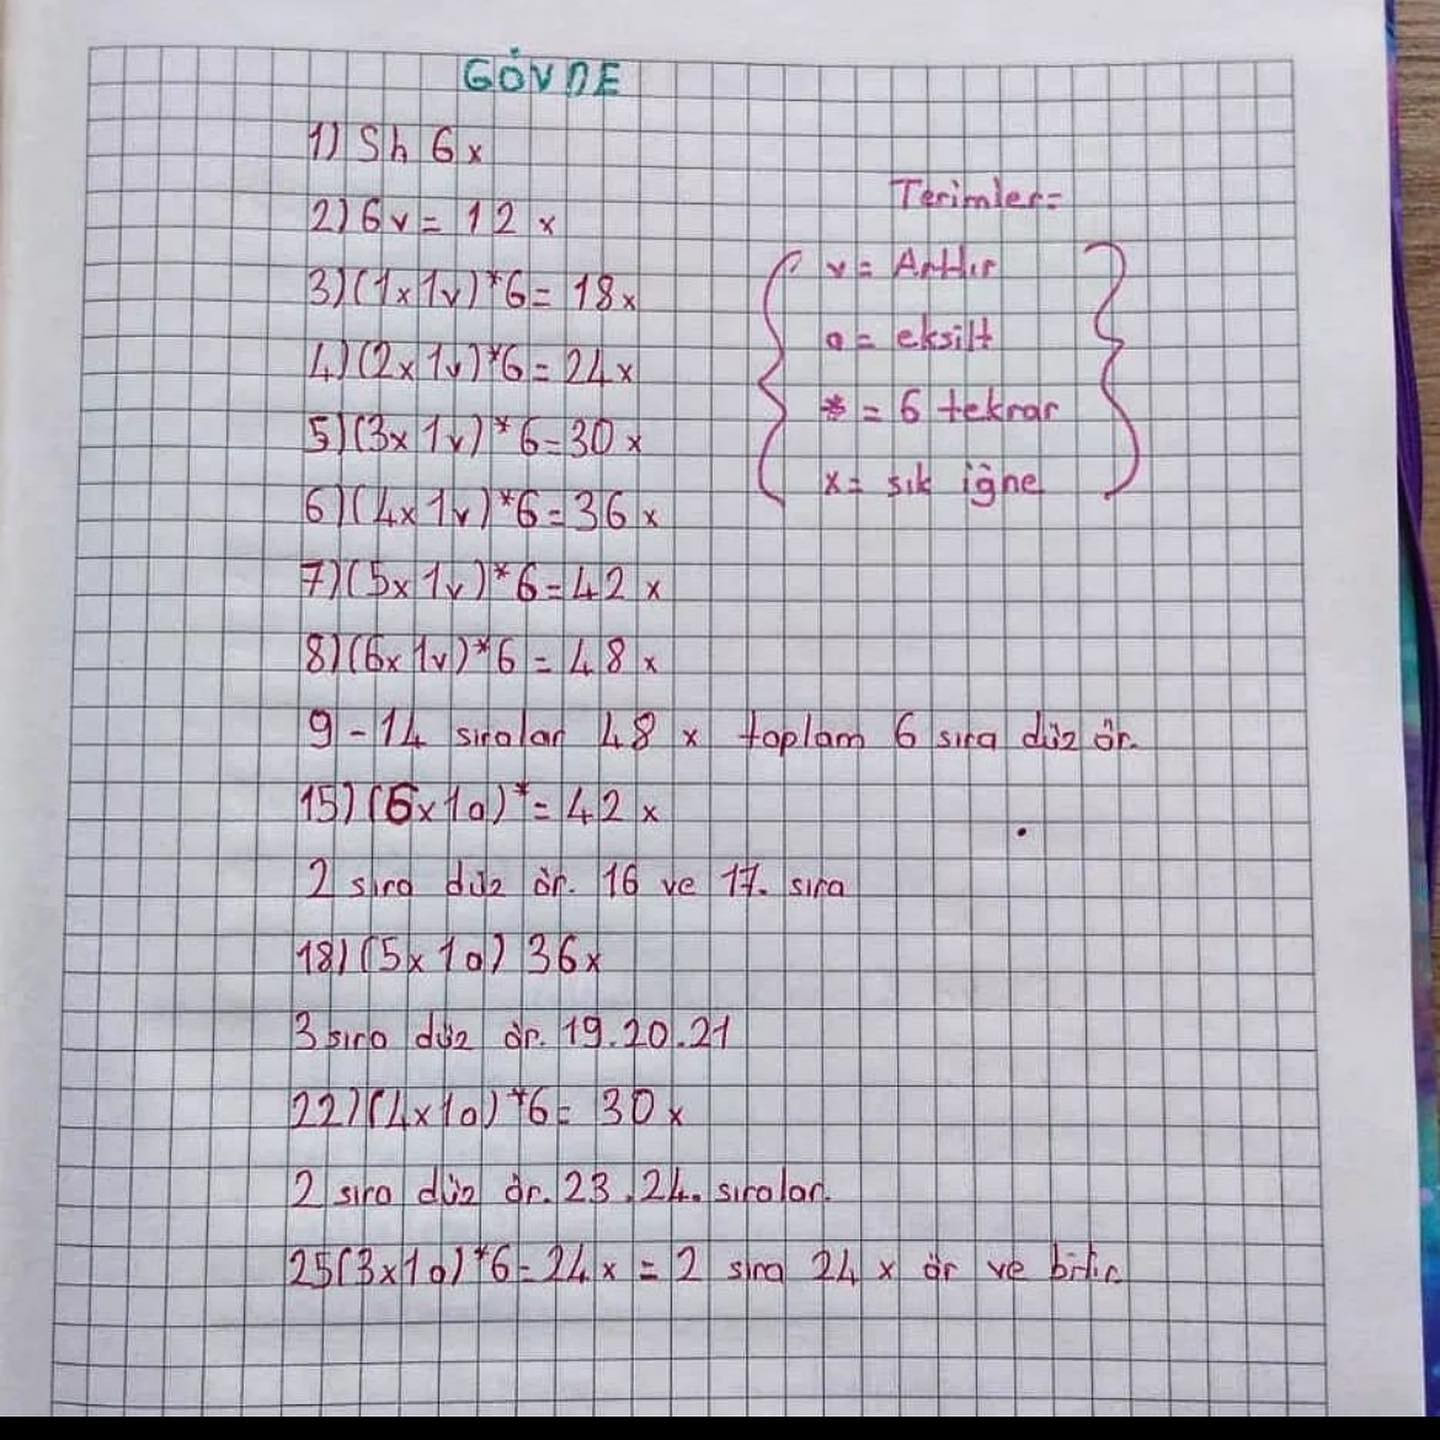 GÖVDE
1) Sh 6x
2) 6v = 12 x
3) (1x1v)*6 = 18x
4) (2x1v)*6 = 24x
5) (3x1v)*6=30x
6) (4x1v)*6=36x
7) (5x1v)*6=42x
8) (6x1v)*6 = 48x
9-14 sıralar 48 x toplam 6 sıra düz ör.
15) (6x1a)*= 42 x
2 sıra düz ör. 16 ve 17. sıra
18) (5x1a) 36x
3 sıra düz ör. 19.20.21
22) (4x1a)*6= 30x
2 sıra düz ör. 23.24. sıralar.
25(3x1a)*6=24x = 2 sıra 24 x ör ve bitir.
Terimler=
v = Arttır
a = eksilt
* = 6 tekrar
x= sık iğne